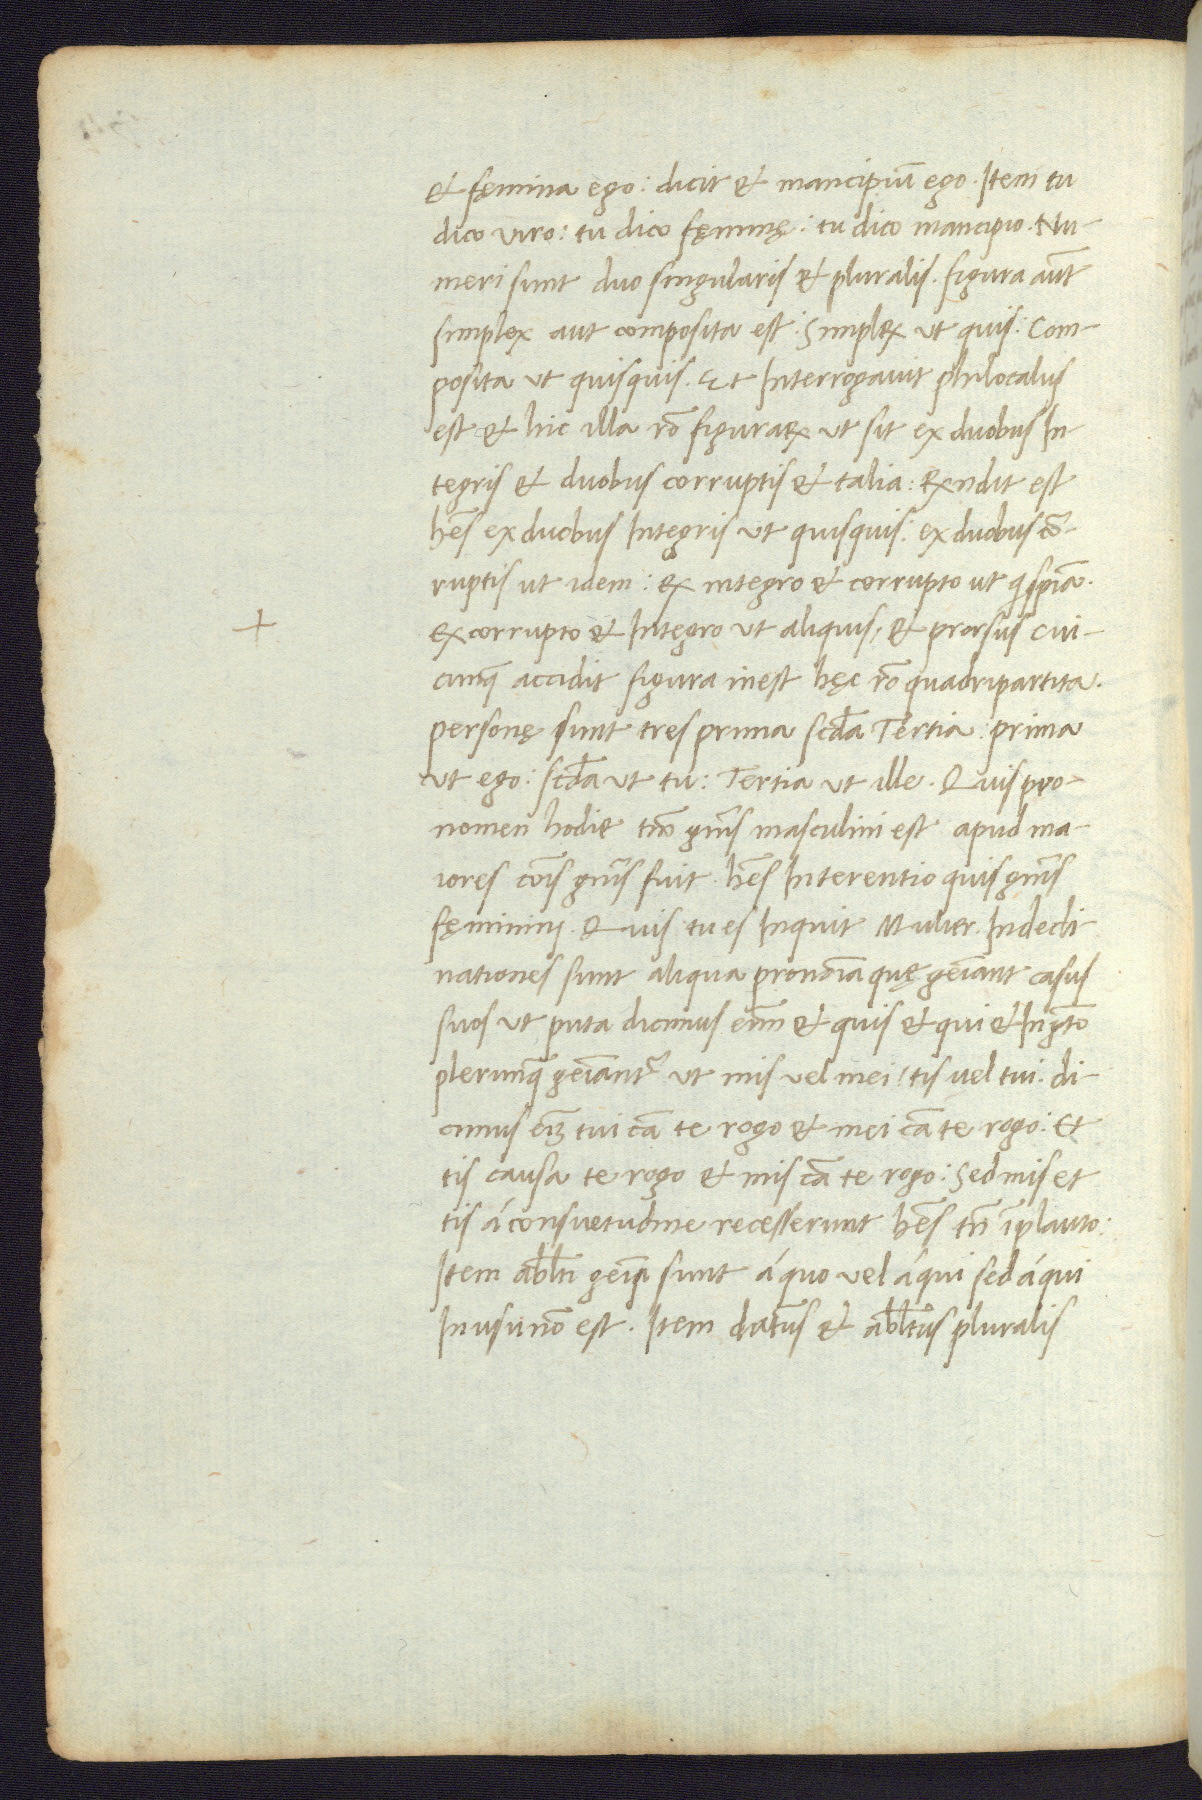 & fęmina ego: dicit & mancipiū ego. Item tu
dico viro: tu dico fęminę: tu dico mancipio. Nu-
meri sunt duo singularis & pluralis. figura aūt
simplex aut composita est: Simplex ut quis: Com-
posita ut quisquis. Et Interrogavit philocalus
est & hic illa rō figurarꝝ ut sit ex duobus In
tegris & duobus corruptis & talia: Rn̄dit est
hēs ex duobus Integris ut quisquis: ex duobus cō-
ruptis ut idem: ex integro & corrupto ut q̇spiā.
+ Ex corrupto & Integro ut aliquis, & prorsus cui-
cunq̄ accidit figura inest hęc rō quadripartita.
personę sunt tres prima scđa Tertia: prima
ut ego: scđa ut tu: Tertia ut ille. Quis pro-
nomen hodie tm̄ gn̄is masculini est apud ma-
iores cōis gn̄is fuit. hēs In terentio quis gn̄is
fęminini. Quis tu es Inquit Mulier. In decli
nationes sunt aliqua pronoīa quę geīant casus
suos ut puta dicimus enī & quis & qui & In gt̄o
plerunq̄ geīantᵉ ut mis vel mei, tis vel tui. di-
cimus eīȝ tui cā te rogo & mei cā te rogo: Et
tis causa te rogo & mis cā te rogo: Sed mis et
tis á consuetudine recesserunt hēs tn̄ ī plauto:
Item abltī geīi sunt á quo vel á qui sed á qui
In usu nō est. Item datīus & abltīus pluralis